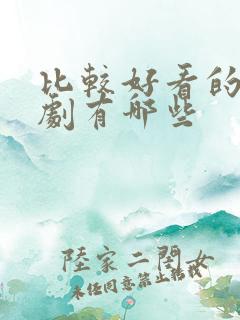 比較好看的
劇有哪些
陸家二閨女
未任同意禁止轉載